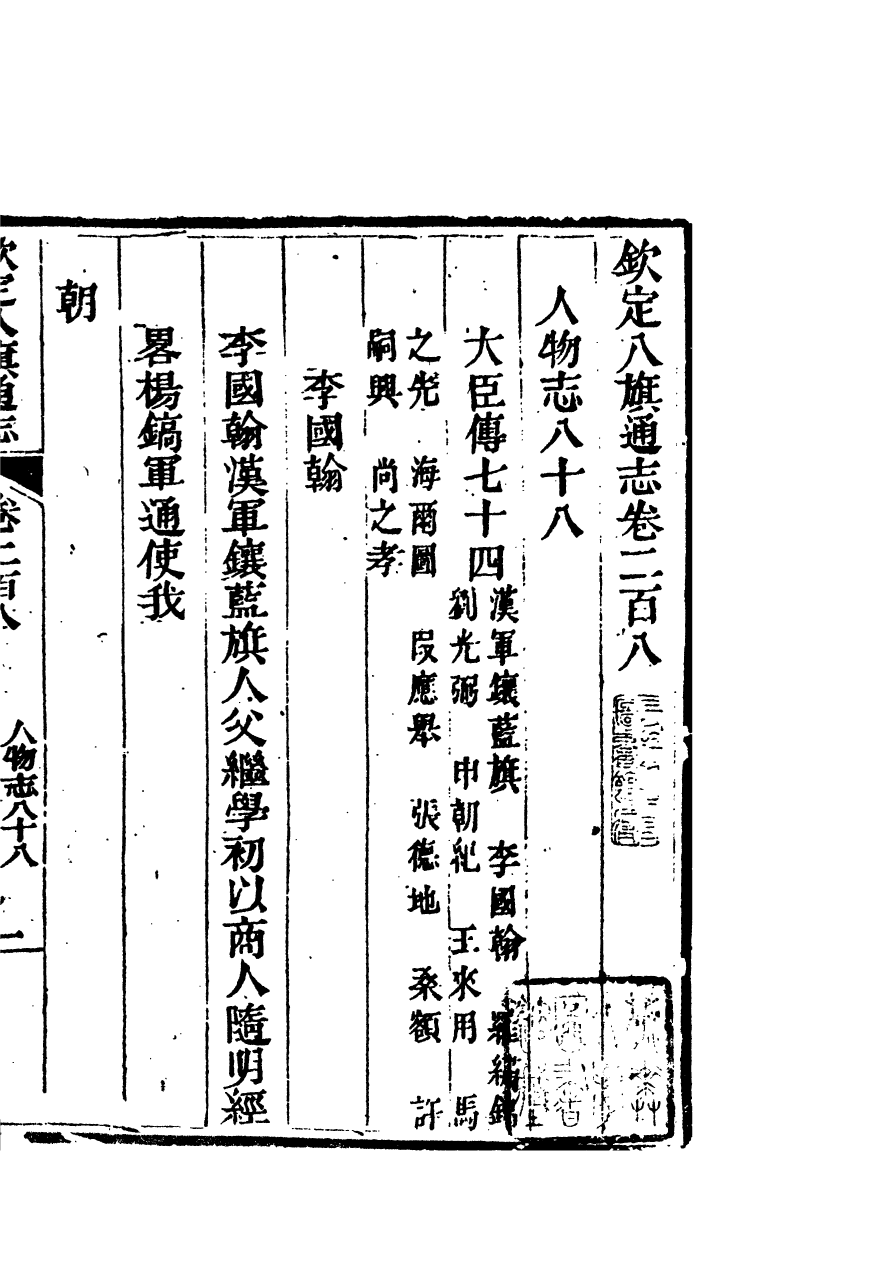 欽定八旗通志卷二百八
人物志八十八
大臣傳七十四
漢軍鑲藍旗 李國翰 羅繡錦
劉光弼 申朝紀 王來用 馬
之先 海爾圖 段應舉 張德地 桑額 許
嗣興 尚之孝
李國翰
李國翰漢軍鑲藍旗人父繼學初以商人隨明經
畧楊鎬軍通使我
朝
欽定八旗通志 卷二百八 人物志八十八 一